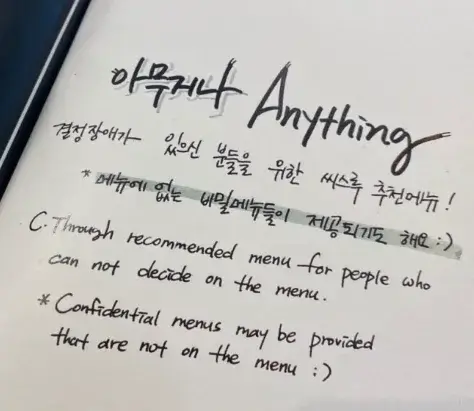 아무거나 Anything
결정장애가 있으신 분들을 위한 씨스루 추천메뉴!
* 메뉴에 없는 비밀메뉴들이 제공되기도 해요 :)
C.Through recommended menu for people who
can not decide on the menu.
* Confidential menus may be provided
that are not on the menu :)